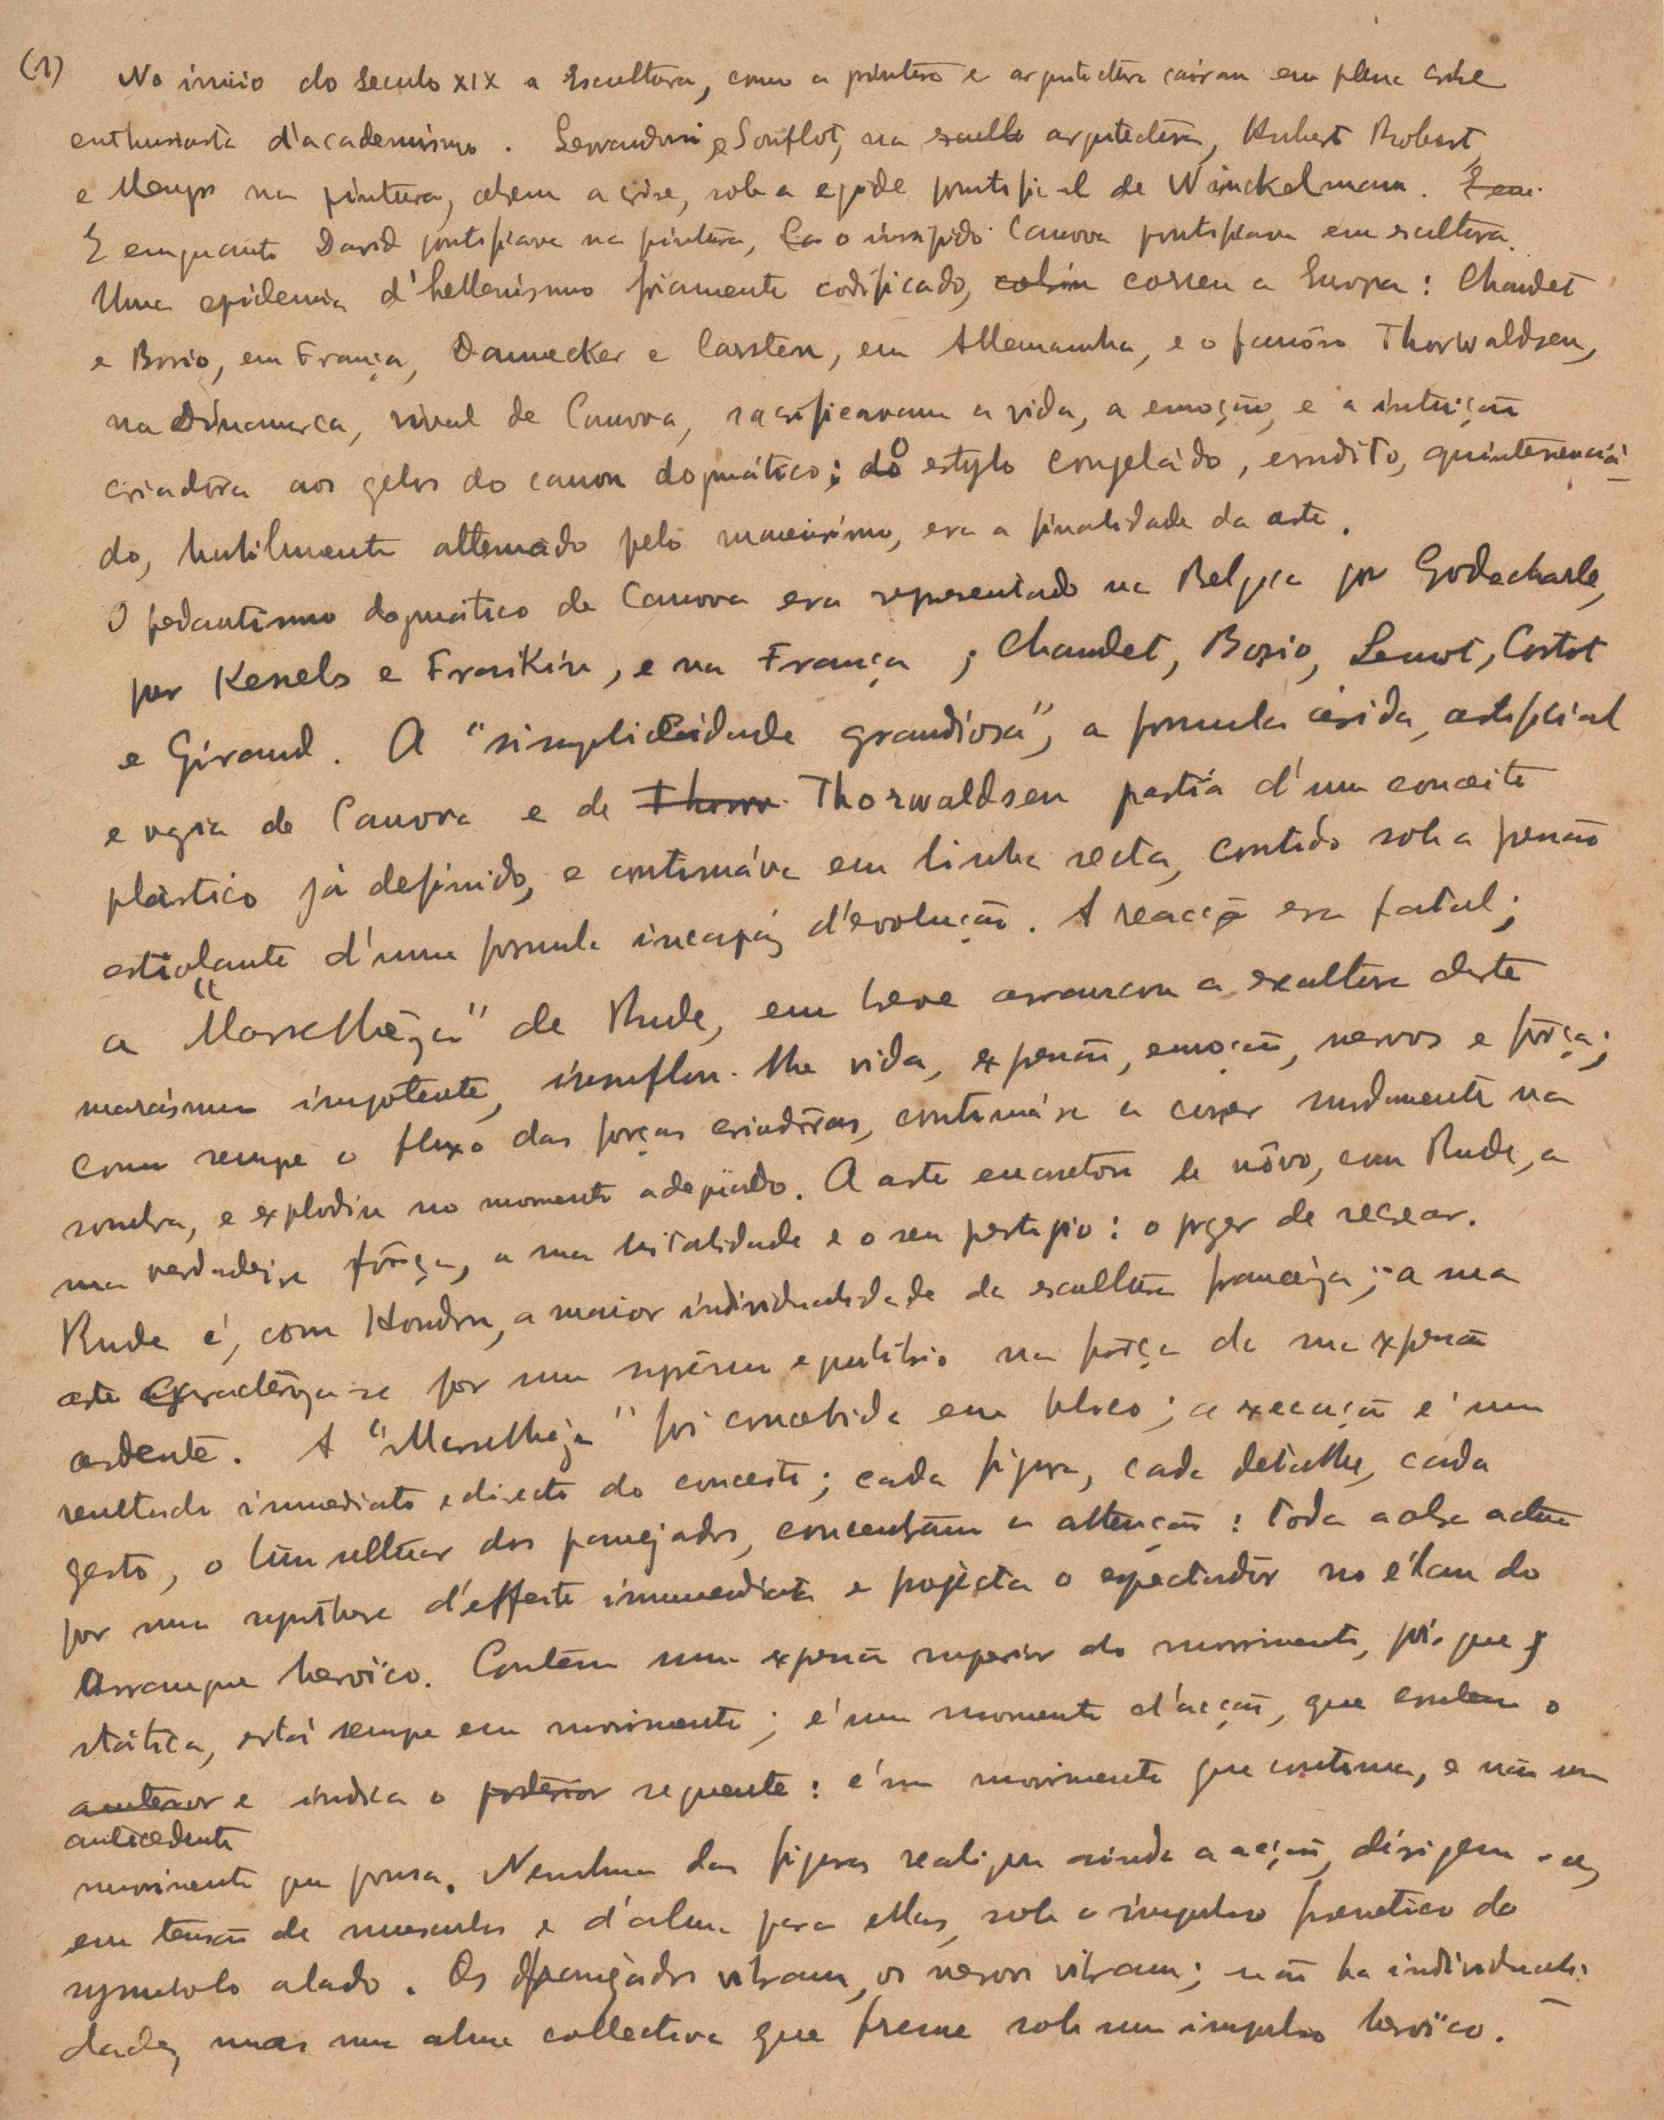 (1) No início do seculo XIX a escultura, como a pintura e arquitectura cairam em plena crise
enthusiasta d'academismo. Servandoni e Souflot, na arquitectura, Hubert Robert,
e Mengs na pintura, abrem a crise, sob a egide pontifical de Winckelmann.
E emquanto David pontificava na pintura, o insipido Canova pontificava em escultura.
Uma epidemia d'hellenismo friamente codificado, correu a Europa: Chaudet
e Bosio, em França, Dannecker e Carsten, em Allemanha, e o famôso Thorwaldsen,
na Dinamarca, rival de Canova, sacrificavam a vida, a emoção, e a intuição
criadôra aos gelos do canon dogmático; o estylo congeládo, erudito, quintessenciá-
do, inutilmente attenuado pelo maneirismo, era a finalidade da arte.
O pedantismo dogmático de Canova era representado na Belgica por Godecharle,
por Kessels e Fraikin, e na França; Chaudet, Bosio, Lemot, Cortot
e Giraud. A "simplicidade grandiosa", a formula árida, artificial
e vazia de Canova e de Thorwaldsen partía d'um conceito
plástico já definido, e continuáva em linha recta, contido sob a pressão
estiolante d'uma formula incapáz d'evolução. A reacção era fatal;
a "Marselhêza" de Rude, em breve arrancou a escultura deste
marásmo impotente, insuflou-lhe vida, expressão, emoção, nervos e fôrça;
como sempe o fluxo das forças criadôras, continuára a correr surdamente na
sombra, e explodiu no momento adequádo. A arte encontrou de nôvo, com Rude, a
sua verdadeira fôrça, a sua vitalidade e o seu prestigio: o przer de recrear.
Rude é, com Houdon, a maior individualidade da escultura francêza; a sua
arte caractériza-se por um suprêmo equilibrio na fôrça da sua expressão
ardente. A "Marselhêza" foi concebida em bloco; a execução é um
resultado immediato e directo do conceito; cada figura, cada detalhe, cada
gesto, o tumultuar dos panejados, concentram a attenção: toda a obra actúa
por uma synthese d'effeito immediato e projécta o espectadôr no élan do
arranque heroïco. Contêm uma expressão superior do movimento, pois que
státtica, está sempe em movimento; é um momento d'acção, que contem o
antecedente e indica o seguente: é um movimento que continua, e não um
movimento que pousa. Nenhuma das figuras realiza ainda a acção, dirigem-se,
em tensão de musculos e d'alma para ellas, sob o impulso frenetico do
symbolo alado. Os panejados vibram, os nervos vibram; não ha individuali-
dades, mas uma alma collectiva que freme sob um impulso heroïco.